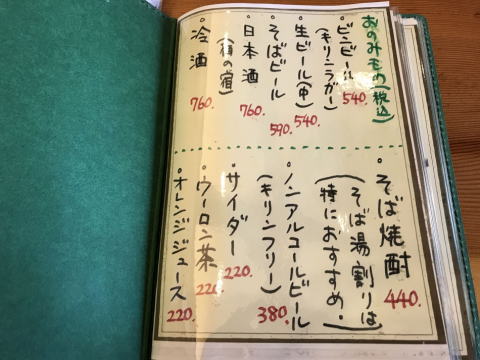 おのみもの(税込)
・ビンビール
(キリンラガー)
540.
・生ビール(中)
540.
・そばビール
590.
・日本酒
760.
・冷酒
(宿)
760.
・そば焼酎
440.
(そば湯割りは
特におすすめ。)
・ノンアルコールビール
(キリンフリー)
380.
・サイダー
220.
・ウーロン茶
220.
・オレンジジュース
220.